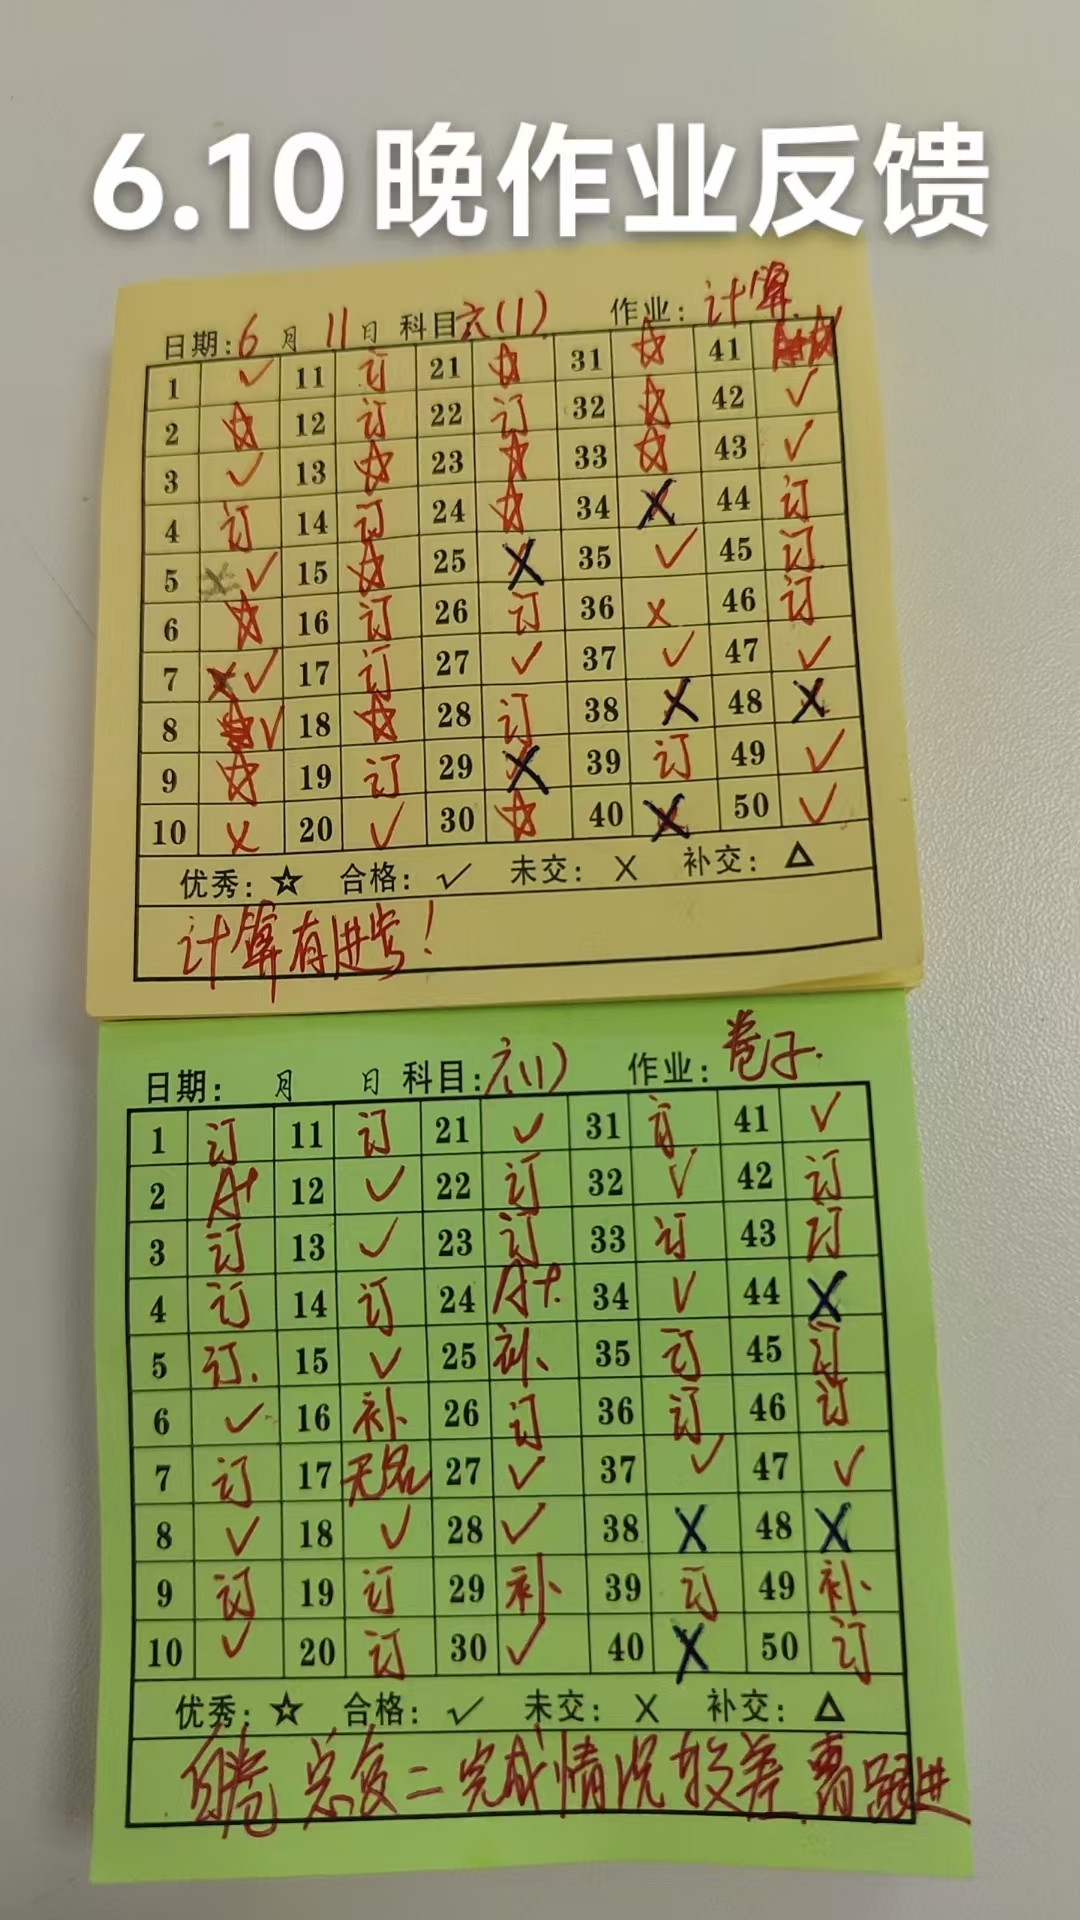 6.10晚作业反馈
日期:6月11日 科目:六(1) 作业:计算.
1 ✓ 11 订 21 ☆ 31 ☆ 41 ☆
2 ☆ 12 订 22 订 32 ☆ 42 ✓
3 ✓ 13 ☆ 23 ☆ 33 ☆ 43 ✓
4 订 14 订 24 ☆ 34 X 44 订
5 ✓ 15 ☆ 25 X 35 ✓ 45 订
6 ☆ 16 订 26 订 36 x 46 订
7 ✓ 17 订 27 ✓ 37 ✓ 47 ✓
8 ✓ 18 ☆ 28 订 38 X 48 X
9 ☆ 19 订 29 X 39 订 49 ✓
10 x 20 ✓ 30 ☆ 40 X 50 ✓
优秀:☆ 合格:✓ 未交:X 补交:△
计算有进步!
日期: 月 日 科目:六(1) 作业:卷子.
1 订 11 订 21 ✓ 31 订 41 ✓
2 A+ 12 ✓ 22 订 32 ✓ 42 订
3 订 13 ✓ 23 订 33 订 43 订
4 订 14 订 24 A+. 34 ✓ 44 X
5 订. 15 ✓ 25 补 35 订 45 订
6 ✓ 16 补 26 订 36 订 46 订
7 订 17 无名 27 ✓ 37 ✓ 47 ✓
8 ✓ 18 ✓ 28 ✓ 38 X 48 X
9 订 19 订 29 补 39 订 49 补
10 ✓ 20 订 30 ✓ 40 X 50 订
优秀:☆ 合格:✓ 未交:X 补交:△
卷 总复二完成情况较差 需跟进